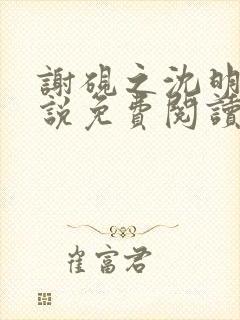 謝硯之沈明
說免費閱讀
崔富君